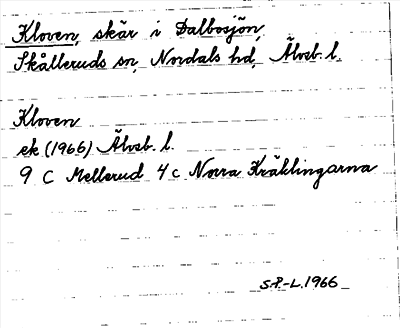 Kloven, skär i Dalbosjön,
Skålleruds sn, Nordals hd, Älvsb. l.
Kloven
ek (1966) Älvsb. l.
9 C Mellerud 4 c Norra Kräklingarna
S.P.-L. 1966